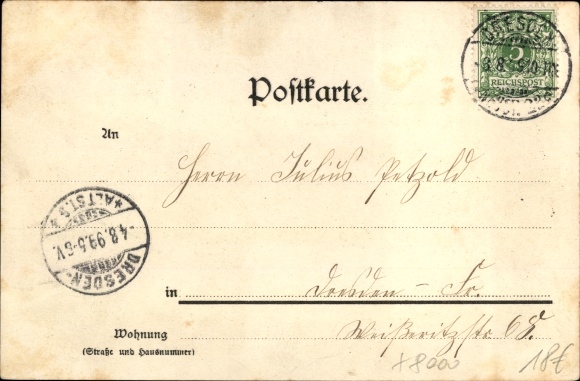 DRESDEN
5
REICHSPOST
Postkarte.
An
Herrn Julius Petzold
*ALTST.5*
-4.8.99.5-6V.
DRESDEN-
in Dresden – Fr.
Wohnung Weißeritzstr 6
(Straße und Hausnummer)
+8000 18€